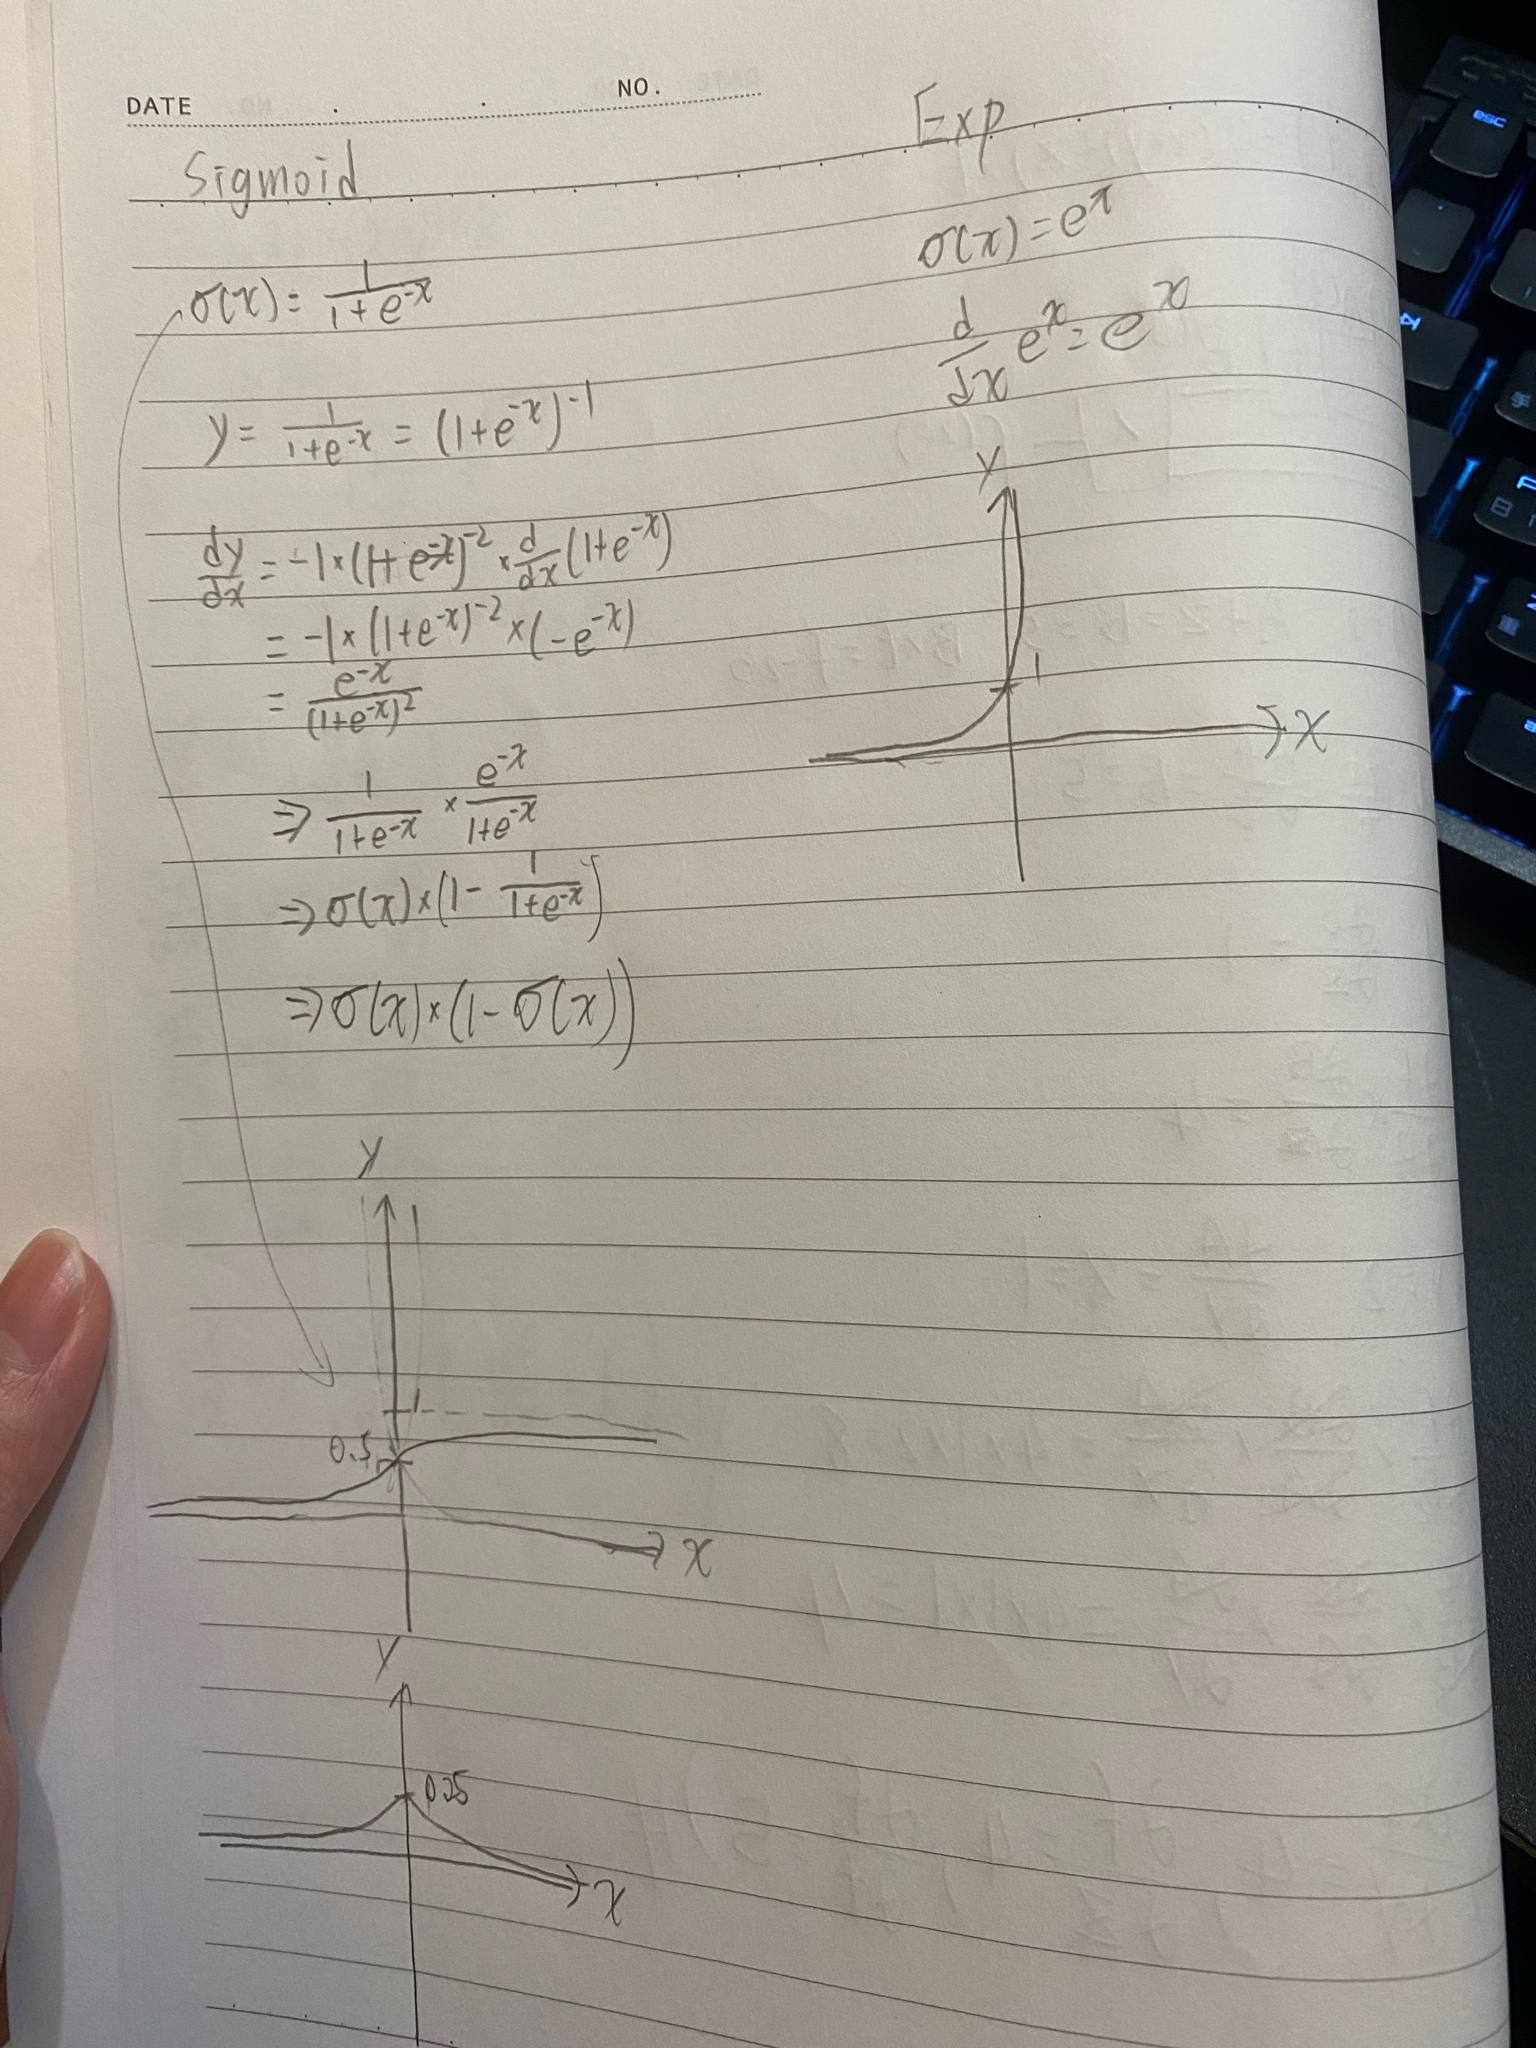 DATE . . NO.
Sigmoid
σ(x) = 1/(1+e^-x)
y = 1/(1+e^-x) = (1+e^-x)^-1
dy/dx = -1×(1+e^-x)^-2 × d/dx (1+e^-x)
= -1×(1+e^-x)^-2×(-e^-x)
= e^-x/(1+e^-x)^2
⇒ 1/(1+e^-x) × e^-x/(1+e^-x)
⇒ σ(x)×(1- 1/(1+e^-x))
⇒ σ(x)×(1-σ(x))
y
1
0.5
x
y
0.25
x
Exp
σ(x)=e^x
d/dx e^x = e^x
y
1
x
esc